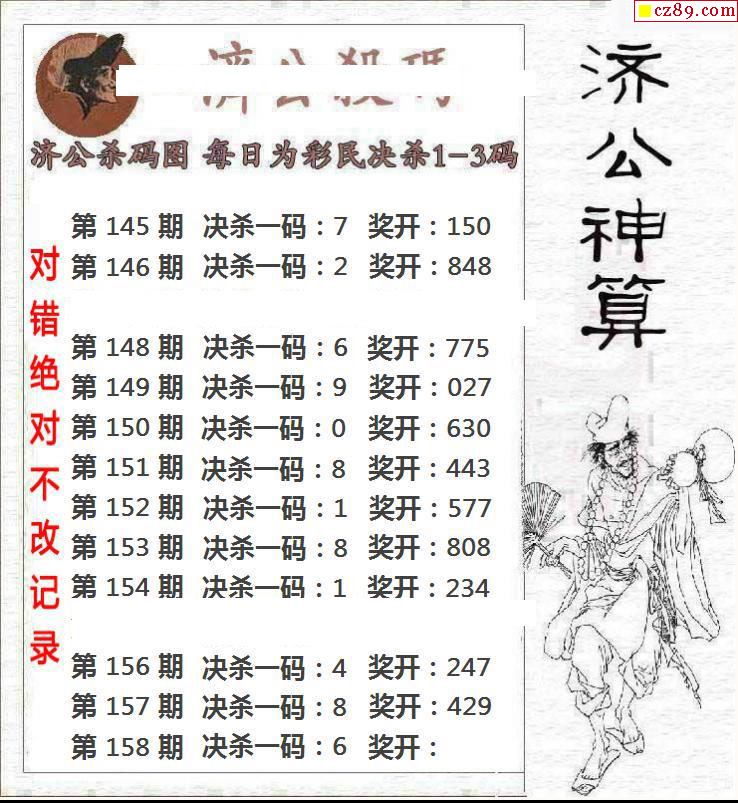 cz89.com
济公殺碼
济公杀码图 每日为彩民决杀1-3码
第 145 期 决杀一码：7 奖开：150
第 146 期 决杀一码：2 奖开：848
第 148 期 决杀一码：6 奖开：775
第 149 期 决杀一码：9 奖开：027
第 150 期 决杀一码：0 奖开：630
第 151 期 决杀一码：8 奖开：443
第 152 期 决杀一码：1 奖开：577
第 153 期 决杀一码：8 奖开：808
第 154 期 决杀一码：1 奖开：234
第 156 期 决杀一码：4 奖开：247
第 157 期 决杀一码：8 奖开：429
第 158 期 决杀一码：6 奖开：
对错绝对不改记录
济公神算